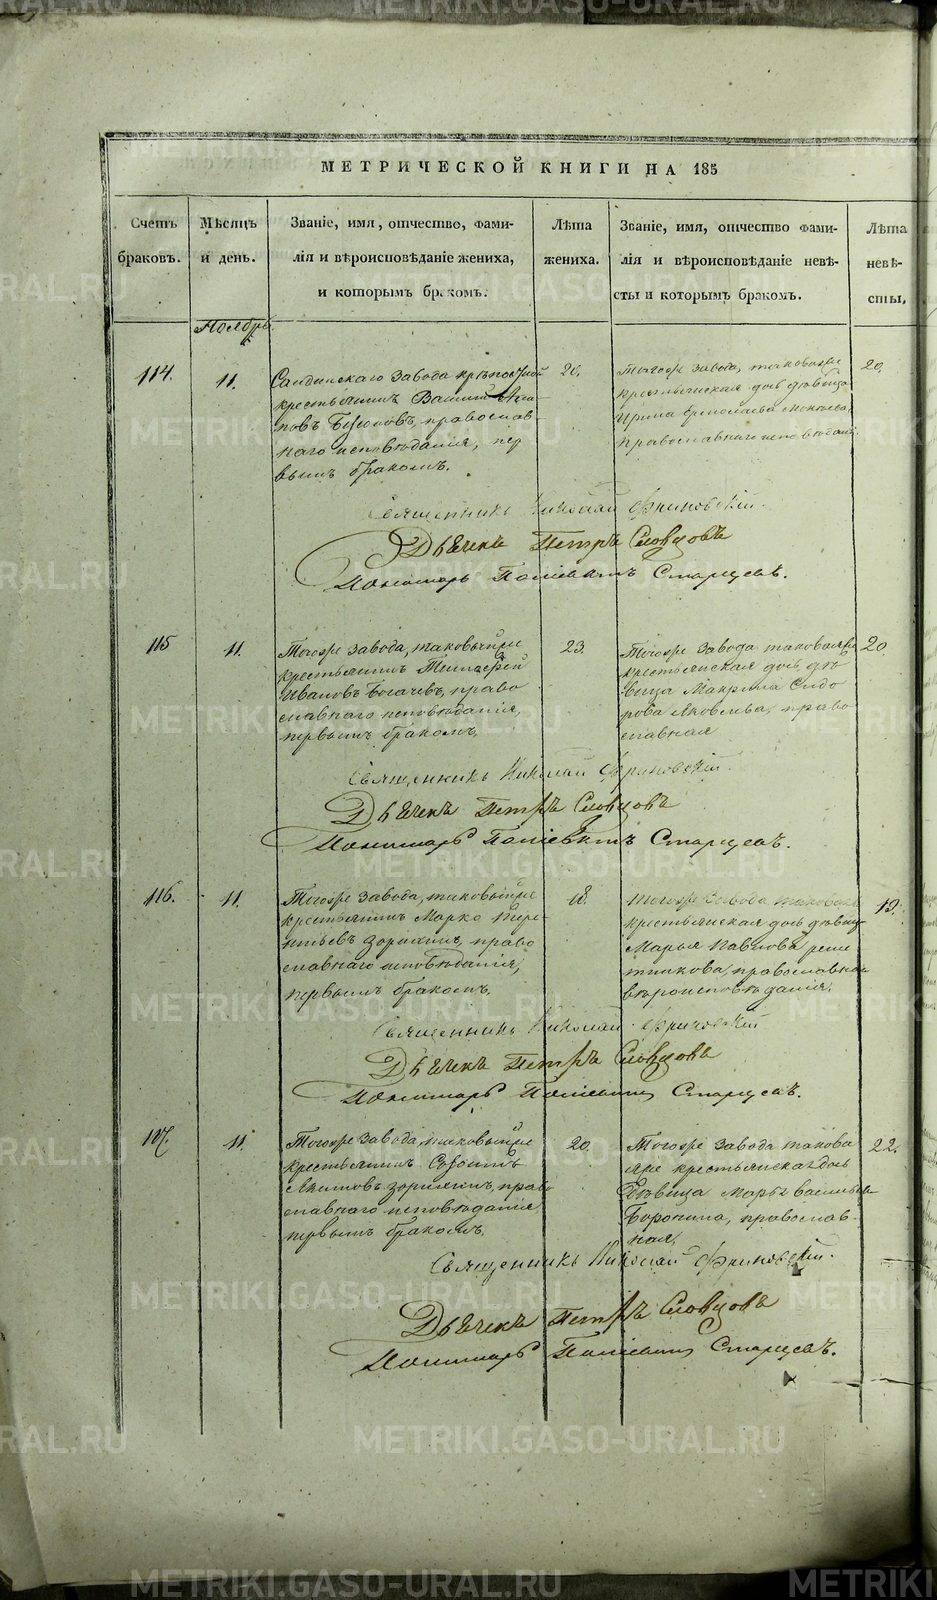 МЕТРИЧЕСКОЙ КНИГИ НА 185
Счетъ браковъ.
Мѣсяцъ и день.
Званіе, имя, отчество, фами-
лія и вѣроисповѣданіе жениха,
и которымъ бракомъ.
Лѣта жениха.
Званіе, имя, отчество фами-
лія и вѣроисповѣданіе невѣ-
сты и которымъ бракомъ.
Лѣта невѣ-
сты.
Ноябрь
114.
11.
Салдинскаго завода крѣпостной
крестьянинъ
православ-
наго исповѣданія, пер
вымъ бракомъ.
20.
Тогоже завода, таковаяже
крестьянская дочь дѣвица
Ирина
православнаго исповѣданія
20.
Священникъ Николай Фриновскій.
Дьячекъ Петръ Словцовъ
Пономарь Поліевктъ Старцевъ.
115
11.
Тогоже завода, таковыйже
крестьянинъ Тимофей
Ивановъ Богачевъ, право
славнаго исповѣданія,
первымъ бракомъ.
23.
Тогоже завода таковаяже
крестьянская дочь, дѣ
вица Макрина Сидо
рова Яковлева, право
славная
20.
Священникъ Николай Фриновскій.
Дьячекъ Петръ Словцовъ
Пономарь Поліевктъ Старцевъ.
116.
11.
Тогоже завода, таковыйже
крестьянинъ Марко Тере-
нтьевъ Зорихинъ, право
славнаго исповѣданія,
первымъ бракомъ.
18.
Тогоже завода таковаяже
крестьянская дочь дѣвица
Марья Павлова Реше
тникова, православнаго
вѣроисповѣданія.
19.
Священникъ Николай Фриновскій
Дьячекъ Петръ Словцовъ
Пономарь Поліевктъ Старцевъ.
117.
11.
Тогоже завода, таковыйже
крестьянинъ Созонтъ
Акимовъ Зорихинъ, право
славнаго исповѣданія
первымъ бракомъ.
20.
Тогоже завода такова
яже крестьянская дочь
дѣвица Марѳа Васильева
Воронина, православ-
ная.
22.
Священникъ Николай Фриновскій.
Дьячекъ Петръ Словцовъ
Пономарь Поліевктъ Старцевъ.
METRIKI.GASO-URAL.RU